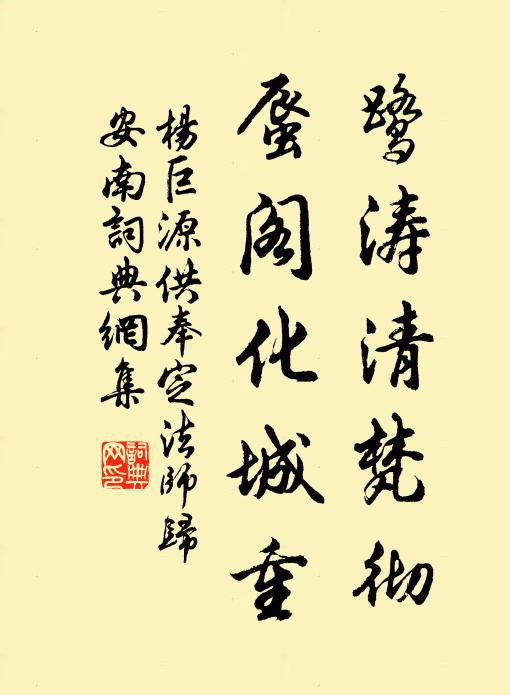 鹭涛清梵彻
蜃阁化城重
楊巨源供奉定法師歸
安南詞典網集
詞典
网印